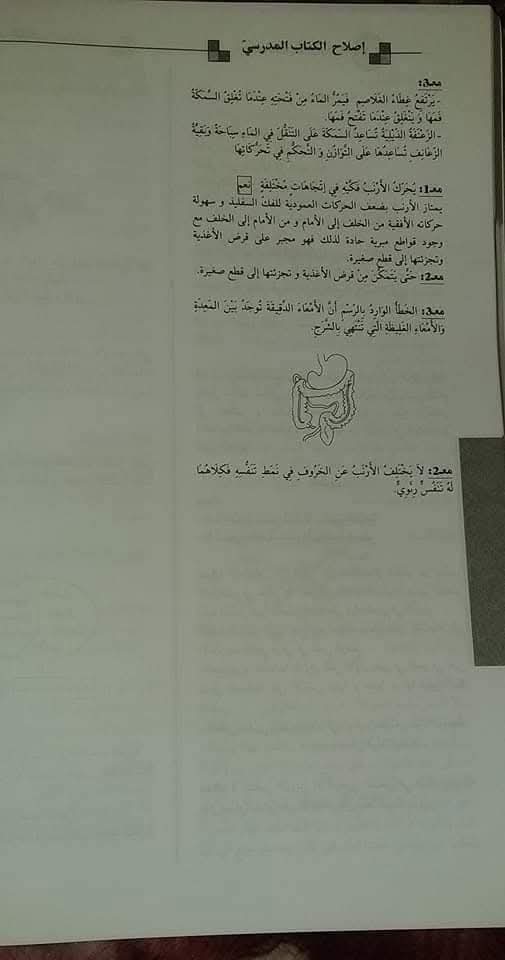 إصلاح الكتاب المدرسيّ
معـ3:
-يَرْتَفِعُ غِطَاءُ الغَلَاصِمِ فَيَمُرُّ المَاءُ مِنْ فَتْحَتِهِ عِنْدَمَا تُغْلِقُ السَّمَكَةُ
فَمَهَا وَ يَنْغَلِقُ عِنْدَمَا تَفْتَحُ فَمَهَا.
-الزَّعْنَفَةُ الذَّيْلِيَّةُ تُسَاعِدُ السَّمَكَةَ عَلَى التَّنَقُّلِ فِي المَاءِ سِبَاحَةً وَبَقِيَّةُ
الزَّعَانِفِ تُسَاعِدُهَا عَلَى التَّوَازُنِ وَ التَّحَكُّمِ فِي تَحَرُّكَاتِهَا
معـ1: يُحَرِّكُ الأَرْنَبُ فَكَّيْهِ فِي اِتِّجَاهَاتٍ مُخْتَلِفَةٍ نعم
يمتاز الأرنب بضعف الحركات العمودية للفك السفليد و سهولة
حركاته الأفقية من الخلف إلى الأمام و من الأمام إلى الخلف مع
وجود قواطع مبرية حادة لذلك فهو مجبر على قرض الأغذية
وتجزئتها إلى قطع صغيرة.
معـ2: حَتَّى يَتَمَكَّنَ مِنْ قرض الأغذية و تجزئتها إلى قطع صغيرة.
معـ3: الخَطَأُ الوَارِدُ بِالرَّسْمِ أَنَّ الأَمْعَاءَ الدَّقِيقَةَ تُوجَدُ بَيْنَ المَعِدَةِ
وَالأَمْعَاءِ الغَلِيظَةِ الَّتِي تَنْتَهِي بِالشَّرَجِ.
معـ2: لاَ يَخْتَلِفُ الأَرْنَبُ عَنِ الخَرُوفِ فِي نَمَطِ تَنَفُّسِهِ فَكِلَاهُمَا
لَهُ تَنَفُّسٌ رِئَوِيٌّ.